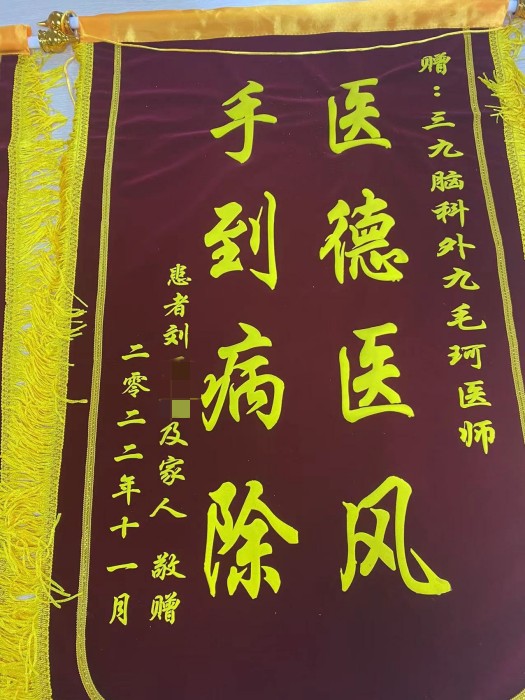 赠：三九脑科外九毛珂医师
医德医风
手到病除
患者刘
及家人 敬赠
二零二二年十一月